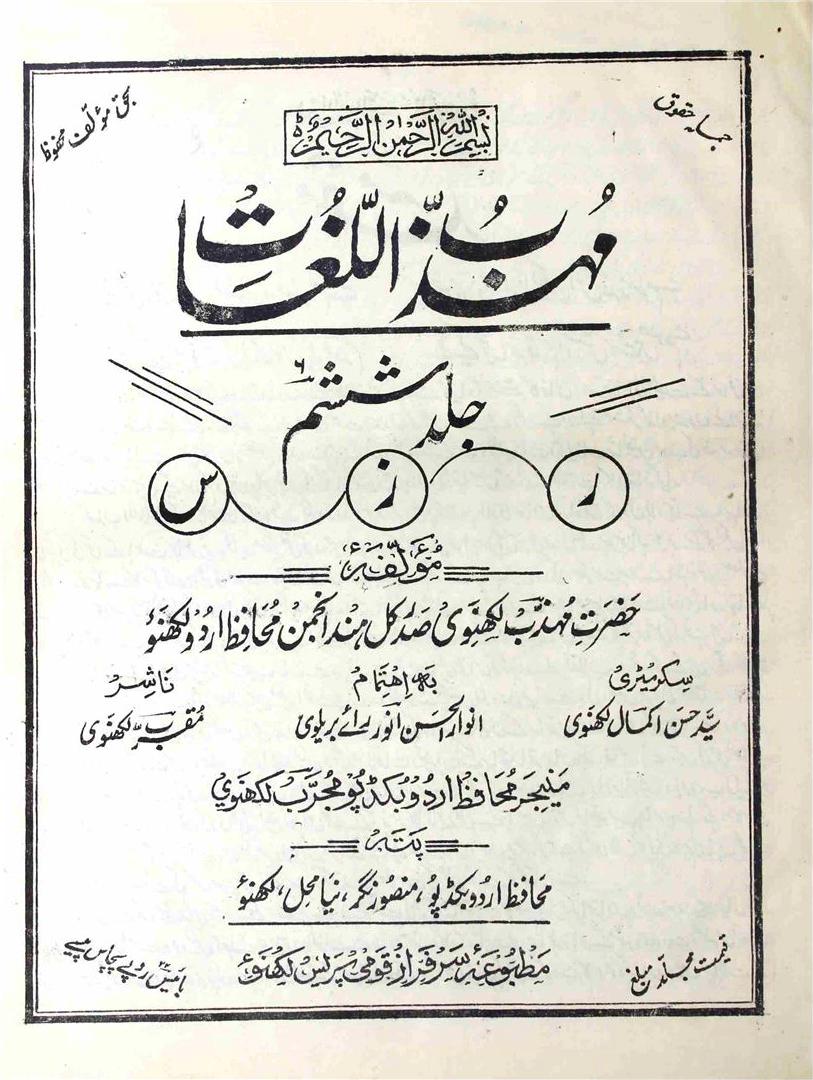 جملہ حقوق بحق مؤلف محفوظ
بِسْمِ اللهِ الرَّحْمٰنِ الرَّحِيْمِ
مُہذّبُ اللُّغات
جلد ششم ۶
ر ز س
مُؤلّفہٗ
حَضرَتِ مُہذّبؔ لکھنَوی صَدر کل ہند انجمن مُحافظ اردو لکھنؤ
سکریٹری
سیّد حسن اکمالؔ لکھنوی
بہ اِہتمام
انوار الحسن انورؔ رائے بریلوی
نَاشِر
مُقربؔ لکھنوی
منیجر مُحافظ اردو بُکڈپو مُجرّبؔ لکھنوی
پتہ
محافظ اردو بکڈپو، منصور نگر، نیا محل، لکھنؤ
مطبوعۂ سرفراز قومی پریس لکھنؤ
قیمت مجلد مبلغ
بائیس روپے پچاس پیسے